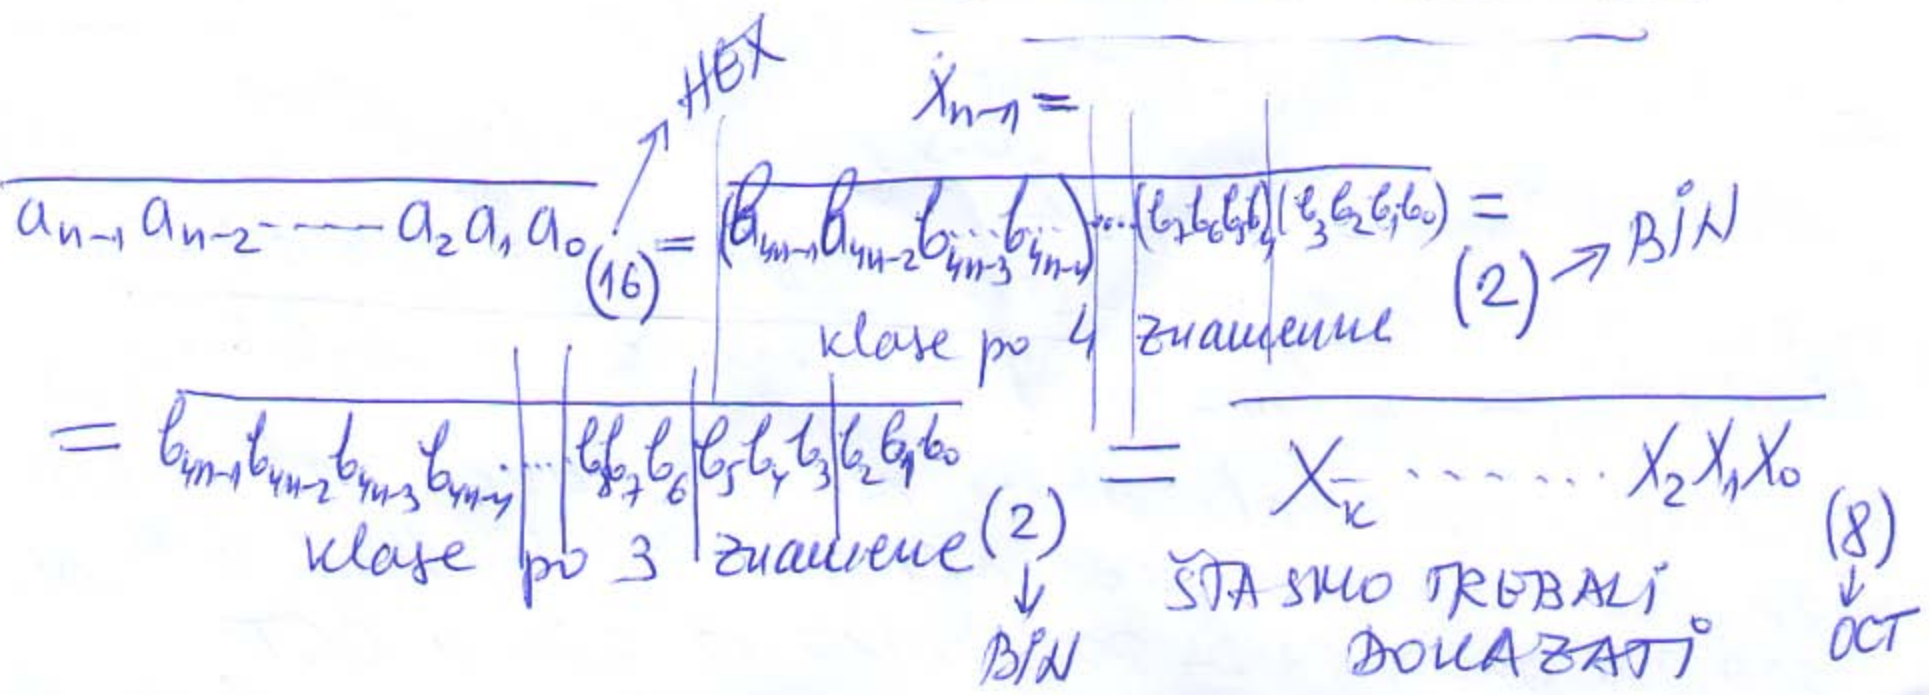 HEX
X_{n-1} =
a_{n-1} a_{n-2} ----- a_2 a_1 a_0 (16) = (b_{4n-1} b_{4n-2} b_{4n-3} b_{4n-4}) .... (b_7 b_6 b_5 b_4) (b_3 b_2 b_1 b_0) (2) =
BIN
klase po 4 znamenke
= b_{4n-1} b_{4n-2} b_{4n-3} b_{4n-4} ..... b_8 b_7 b_6 b_5 b_4 b_3 b_2 b_1 b_0 (2) = X_k ....... X_2 X_1 X_0 (8)
klase po 3 znamene
BIN
ŠTA SMO TREBALI
DOKAZATI
OCT